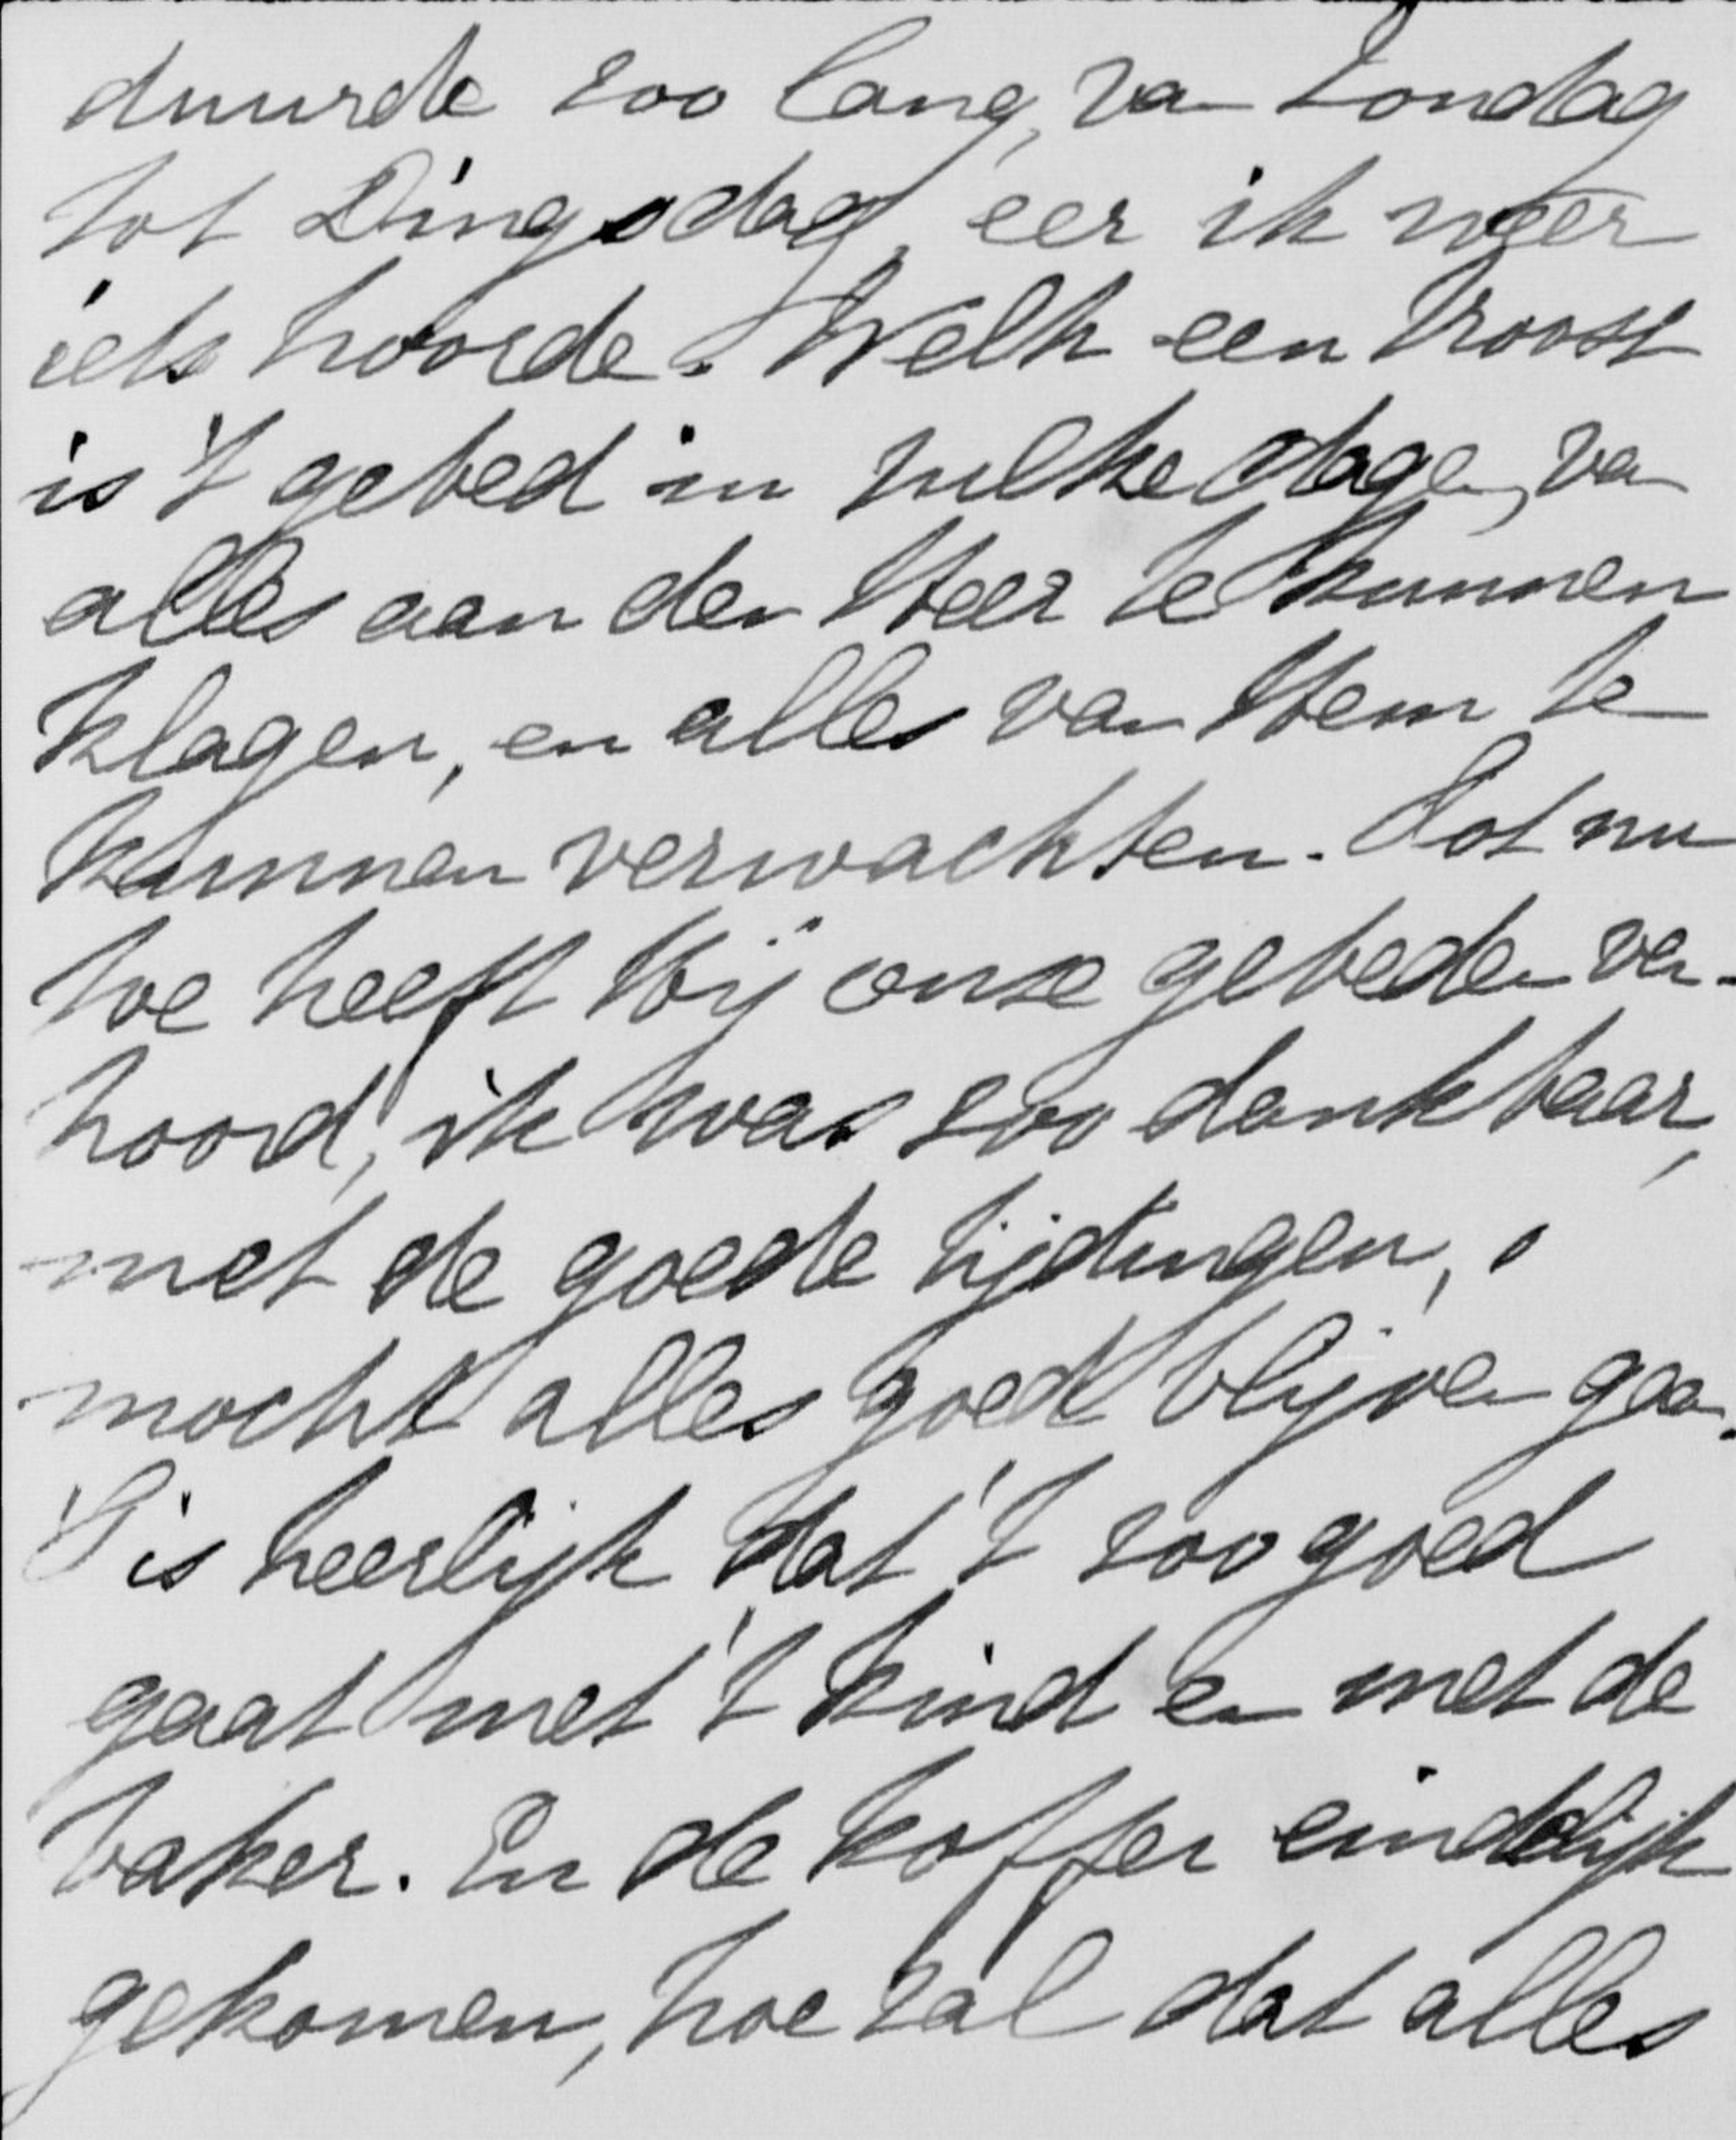 duurde zoo lang, van Zondag
tot Dingsdag, eer ik weer
iets hoorde. Welk een troost
is 't gebed in zulke dagen, van
alles aan den Heer te kunnen
klagen, en alles van Hem te
kunnen verwachten. Tot nu
toe heeft Hij onze gebeden ver-
hoord, ik was zoo dankbaar,
met de goede tijdingen,
mocht alles goed blijven gaan.
't Is heerlijk dat 't zoo goed
gaat met 't kind en met de
baker. En de koffer eindelijk
gekomen, hoe zal dat alles